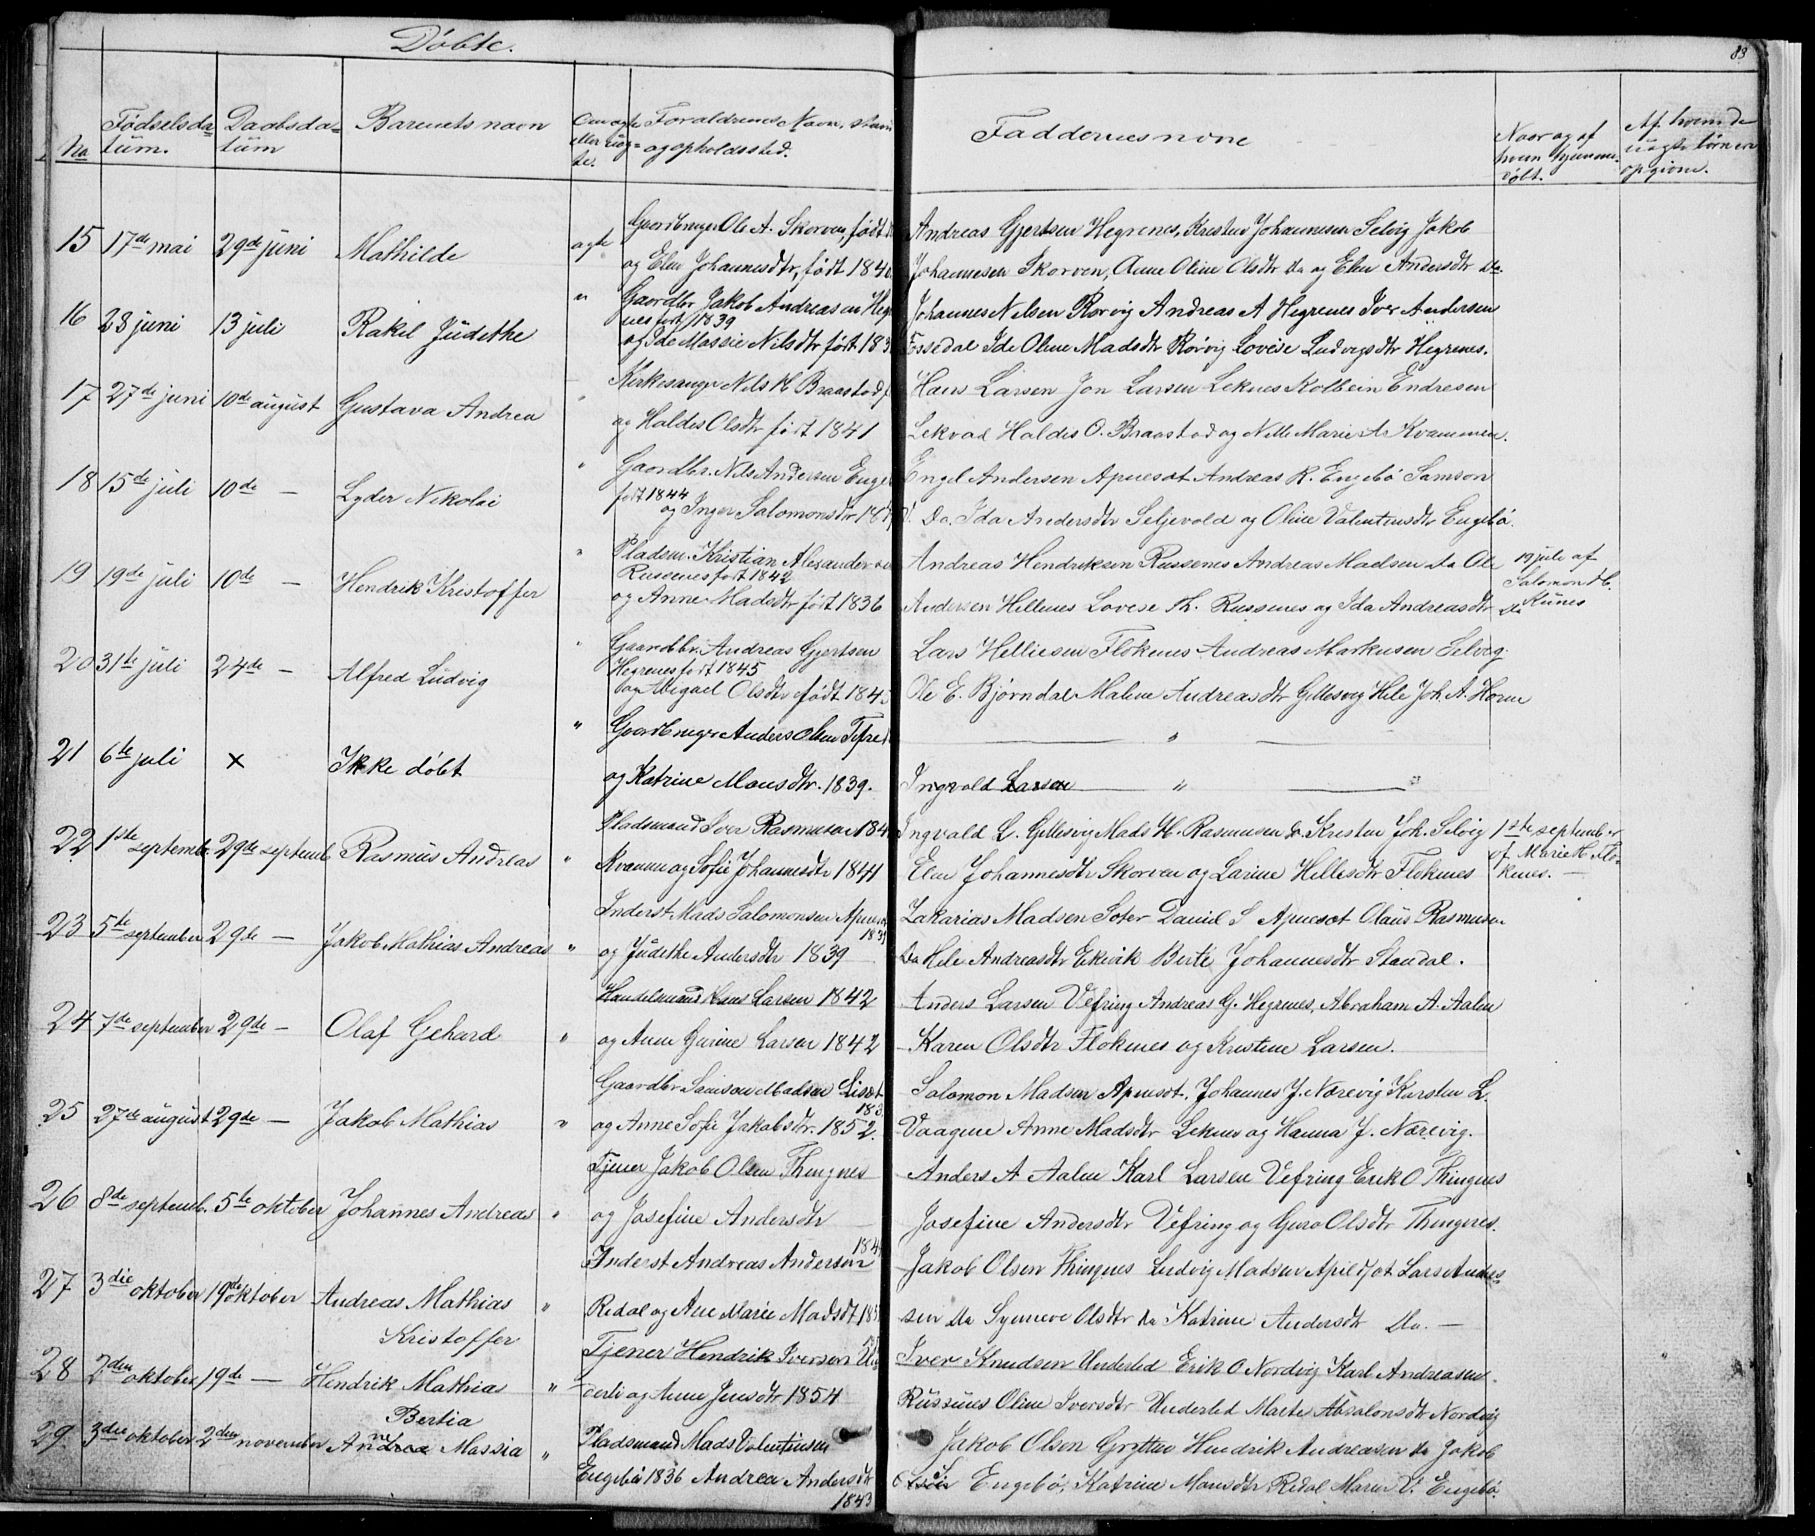 Döbte.
83
No
Födselsda-
tum.
Daabsda-
tum
Barnets navn
Om ægte
eller uæg-
te.
Forældrenes Navn, stand
og opholdssted.
Faddernes navne
Naar og af
hvem hjemme-
döbt.
Af hvem de
uægte börn er
opgivne.
15 17de mai 29de juni Mathilde ægte Gaardbruger Ole A. Skorven, født
og Elen Johannesdtr, født 184
Andreas Gjertsen Hegrenes, Kristen Johannesen Selvig Jakob
Johannesen Skorven, Anne Oline Olsdtr do og Elen Andersdtr do
16 23 juni 13 juli Rakel Judithe " Gaardbr. Jakob Andreasen Heg
nes født 1839
og Ide Massie Nilsdtr født 183
Johannes Nilsen Rørvig Andreas A Hegrenes Iver Andersen
Fossedal Ide Oline Madsdtr Rørvig Lovise Ludvigsdtr Hegrenes.
17 27de juni 10de august Gustava Andrea " Kirkesanger Nils K Braastad f
og Haldis Olsdtr født 1841
Hans Larsen Jon Larsen Leknes Kolbein Endresen
Lekvad Haldis O. Braastad og Nille Marie A. Kvammen.
18 15de juli 10de — Lyder Nikolai " Gaardbr. Nils Andersen Enge
født 1844
og Inger Salomonsdtr 18
Engel Andersen Apneset Andreas R. Engebö Samson
Do, Ida Andersdtr Seljevold og Oline Valentinsdtr Engebö.
19 19de juli 10de — Hendrik Kristoffer " Pladsm. Kristian Alexandersen
Russenes født 1842
og Anne Madsdtr født 1836
Andreas Hendriksen Russenes Andreas Madsen do Ole
Andersen Hellenes Lovise Th. Russenes og Ida Andreasdtr do
19 juli af
Salomon
20 31te juli 24de — Alfred Ludvig " Gaardbr. Andreas Gjertsen
Hegrenes født 1845
og Abigael Olsdtr født 184
Lars Helliesen Flokenes Andreas Markusen Selvig
Ole E. Bjørndal Malene Andreasdtr Gillesvig Hele Joh. A. Horne
21 6te juli × Ikke döbt " Gaardbruger Anders Olsen Tefre
og Katrine Monsdtr. 1839.
— " —
Ingvald Larsen — " —
22 1ste septemb. 29de septemb. Rasmus Andreas " Pladsmand Iver Rasmusen 184
Kvamme og Sofie Johannesdtr 1841
Ingvald L. Gillesvig Mads H. Rasmusen do Kristen Joh. Selvig
Elen Johannesdtr Skorven og Larine Hellesdtr Flokenes
1ste september
af Marie H. Flo-
kenes. —
23 5te september 29de — Jakob Mathias Andreas " Inderst Mads Salomonsen Apnes
183
og Judithe Andersdtr 1839
Zakarias Madsen Soter Daniel S Apneset Olaus Rasmusen
Do Hele Andreasdtr Ekevik Birte Johannesdtr Standal.
24 7de september 29de — Olaf Gehard " Handelsmand Hans Larsen 1842
og Anne Gurine Larsen 1842
Anders Larsen Vefring Andreas G. Hegrenes, Abraham A. Aalen
Karen Olsdtr Flokenes og Kristine Larsen.
25 27de august 29de — Jakob Mathias " Gaardbr Samson Madsen Liset
183
og Anne Sofie Jakobsdtr. 1852.
Salomon Madsen Apneset, Johannes J. Nærevig Karsten L.
Vaagene Anne Madsdtr Leknes og Hanna J. Nærevig.
26 8de septemb. 5te oktober Johannes Andreas " Tjener Jakob Olsen Thingnes
og Josefine Andersdtr
Anders A Aalen Karl Larsen Vefring Erik O Thingnes
Josefine Andersdtr Vefring og Guro Olsdtr Thingnes.
27 3die oktober 19de oktober Andreas Mathias
Kristoffer " Inderst Andreas Andersen
184
Redal og Ane Marie Madsdt 18
Jakob Olsen Thingnes Ludvig Madsen Lars Anders-
sen do Synneve Olsdtr do Katrine Andersdtr Do. —
28 2den oktober 19de — Hendrik Mathias " Tjener Hendrik Iversen
og Anne Jensdtr 1854
Iver Knudsen Underlid Erik O Nordvig Karl Andreasen
Russenes Oline Iversdtr Underlid Marte Absalonsdtr Nordvig
29 3die oktober 2den november Bertia
Andrea Massia " Pladsmand Mads Valentinsen
Engebö 1836 Andrea Andersdtr
1843
Jakob Olsen Grytten Hendrik Andreasen do Jakob
S Engebö, Katrine Monsdtr Redal Maren V. Engebö.